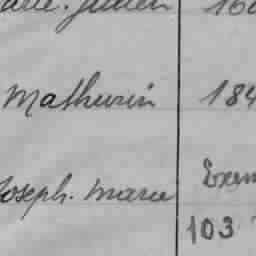 Julien 160
Mathurin 184
Joseph. Marie Exem
103